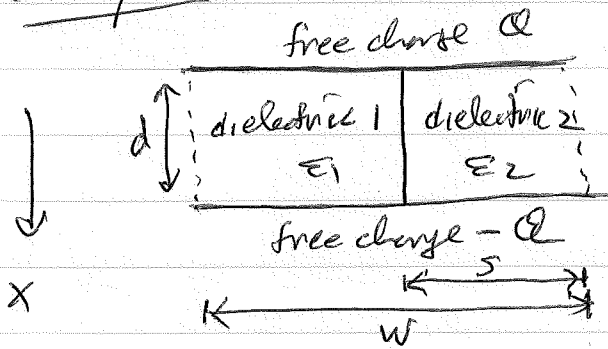 free charge Q
d
dielectric 1
dielectric 2
ε1
ε2
free charge - Q
X
S
W